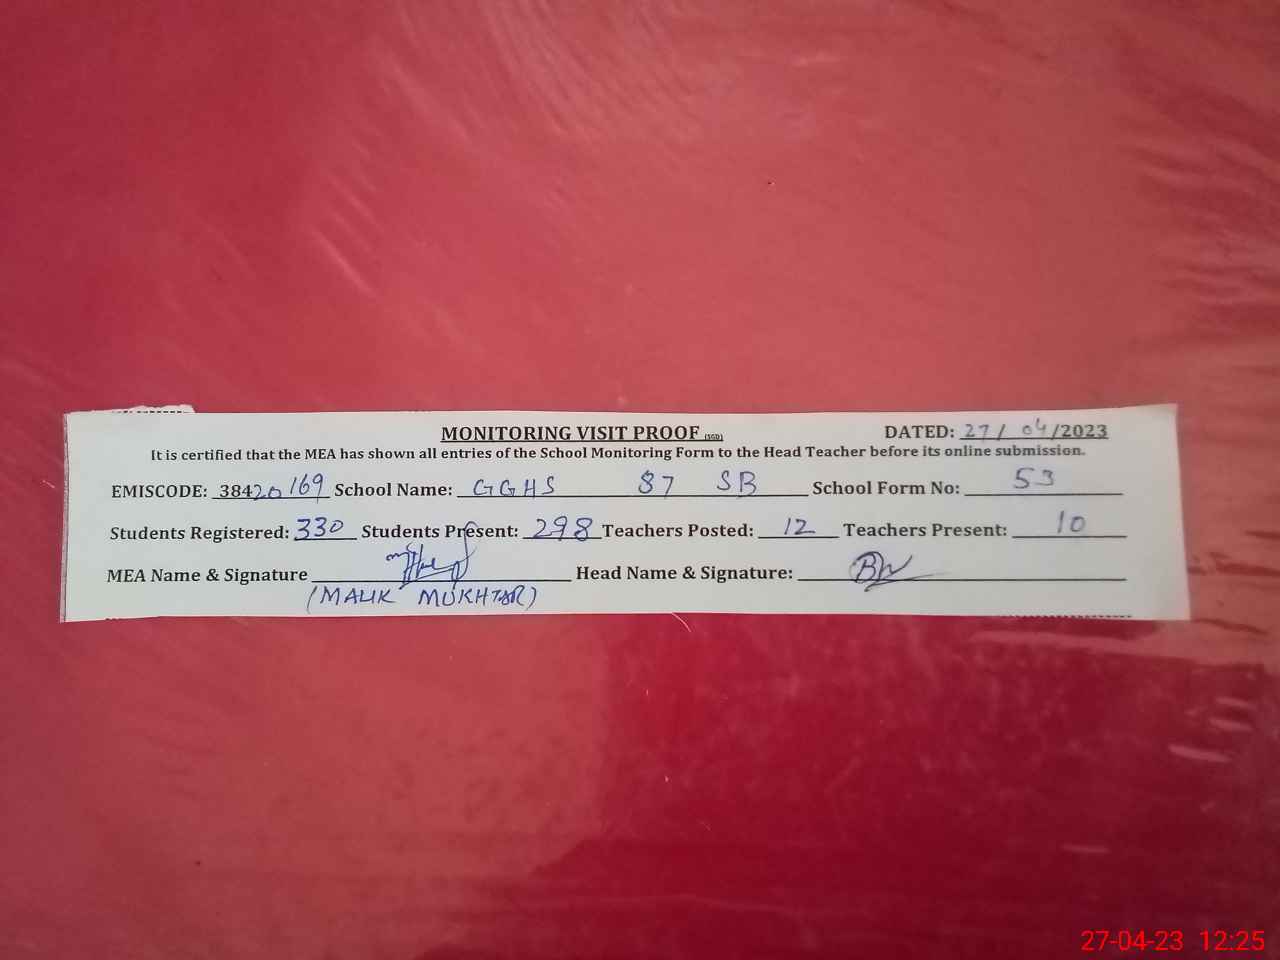 MONITORING VISIT PROOF (SGD) DATED: 27/ 04/2023
It is certified that the MEA has shown all entries of the School Monitoring Form to the Head Teacher before its online submission.
EMISCODE: 38420169 School Name: GGHS 87 SB School Form No: 53
Students Registered: 330 Students Present: 298 Teachers Posted: 12 Teachers Present: 10
MEA Name & Signature Head Name & Signature:
(MALIK MUKHTAR)
27-04-23 12:25